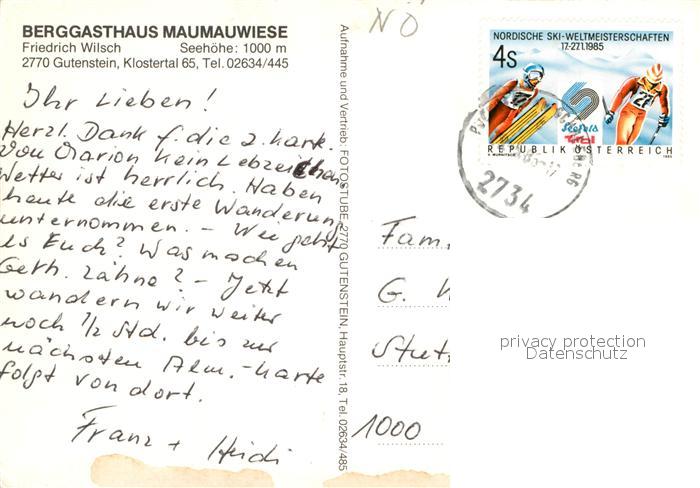 NÖ
BERGGASTHAUS MAUMAUWIESE
Friedrich Wilsch Seehöhe: 1000 m
2770 Gutenstein, Klostertal 65, Tel. 02634/445
Ihr Lieben!
Herzl. Dank f. die 2. Kart.
Von Marion kein Lebzeichen
Wetter ist herrlich. Haben
heute die erste Wanderung
unternommen. – Wie geht
es Euch? Was machen
Gerh. Zähne? – Jetzt
wandern wir weiter
noch 1/2 Std. bis zur
nächsten Alm. – Karte
folgt von dort.
Franz + Heidi
Aufnahme und Vertrieb: FOTOSTUBE, 2770 GUTENSTEIN, Hauptstr. 18, Tel. 02634/485
NORDISCHE SKI-WELTMEISTERSCHAFTEN
17-27.1.1985
4s
Seefeld
Tirol
REPUBLIK ÖSTERREICH
1985
2734
Fam.
G.
Stut
1000
privacy protection
Datenschutz